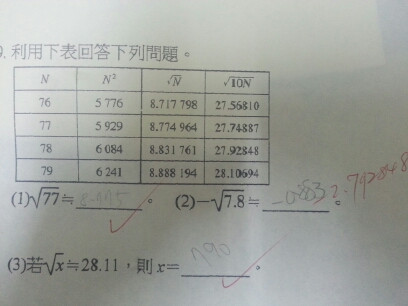 9. 利用下表回答下列問題。
N N² √N √10N
76 5 776 8.717 798 27.56810
77 5 929 8.774 964 27.74887
78 6 084 8.831 761 27.92848
79 6 241 8.888 194 28.10694
(1)√77≒ 。 (2)−√7.8≒ 2.792848 。
(3)若√x≒28.11,則x= 790 。